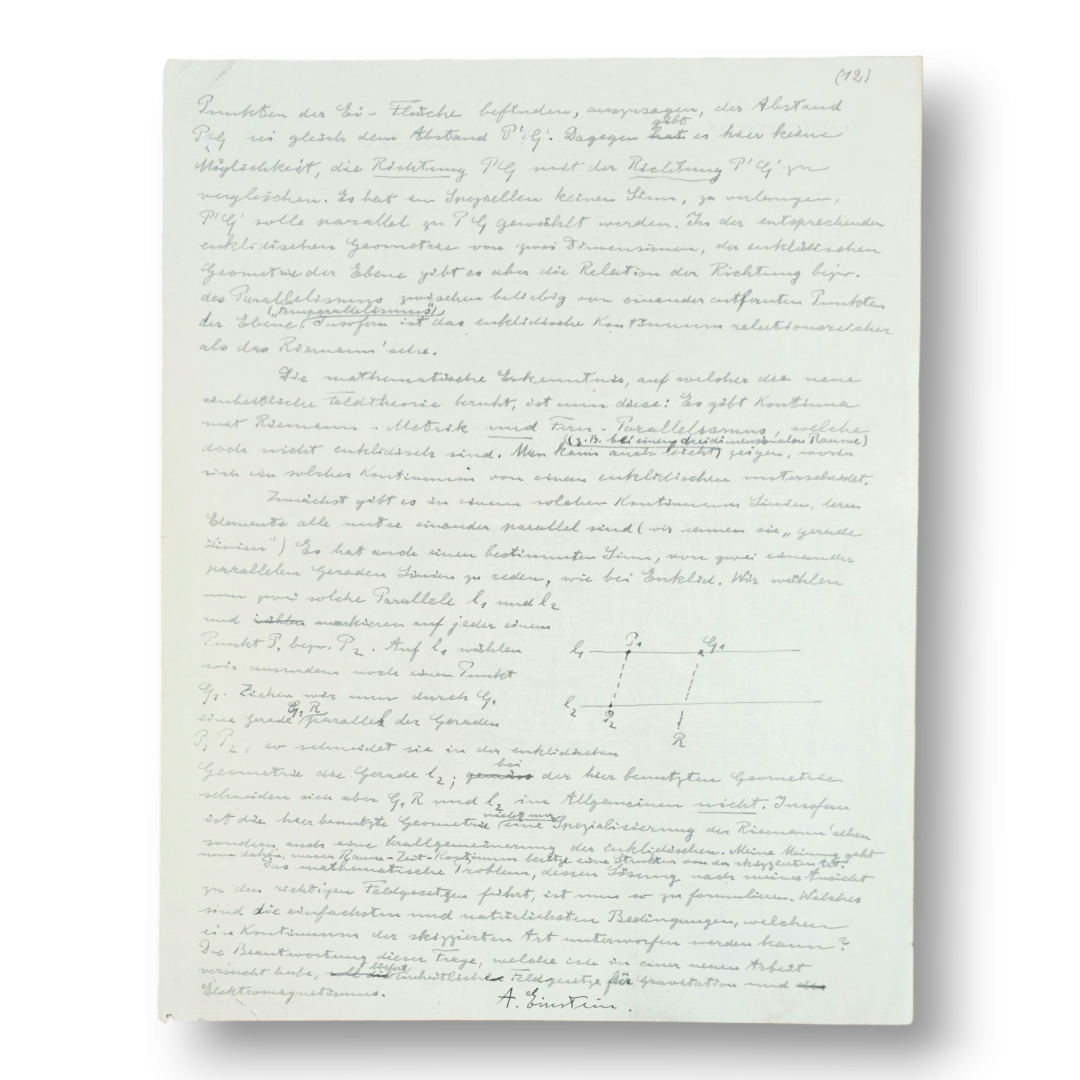 (12)
Punkten der Ei-Fläche befinden, auszusagen, der Abstand
PG sei gleich dem Abstand P'G'. Dagegen gibt es hier keine
Möglichkeit, die Richtung PG mit der Richtung P'G' zu
vergleichen. Es hat im Speziellen keinen Sinn, zu verlangen,
P'G' solle parallel zu PG gewählt werden. In der entsprechenden
euklidischen Geometrie von zwei Dimensionen, der euklidischen
Geometrie der Ebene gibt es aber die Relation der Richtung bezw.
des Parallelismus zwischen beliebig von einander entfernten Punkten
der Ebene ("Fernparallelismus"). Insofern ist das euklidische Kontinuum relationsreicher
als das Riemann'sche.
Die mathematische Erkenntnis, auf welcher die neue
einheitliche Feldtheorie beruht, ist nun diese: Es gibt Kontinua
mit Riemann-Metrik und Fern-Parallelismus, welche
doch nicht euklidisch sind. Man kann (z.B. bei einem dreidimensionalen Raume) auch leicht zeigen, worin
sich ein solches Kontinuum von einem euklidischen unterscheidet.
Zunächst gibt es in einem solchen Kontinuum Linien, deren
Elemente alle unter einander parallel sind (wir nennen sie „gerade
Linien") Es hat auch einen bestimmten Sinn, von zwei einander
parallelen Geraden Linien zu reden, wie bei Euklid. Wir wählen
nun zwei solche Parallele l1 und l2
und wählen markieren auf jeder einem
Punkt P1 bezw. P2. Auf l1 wählen
wir ausserdem noch einen Punkt
G1. Ziehen wir nun durch G1
eine Gerade G1 R parallel der Geraden
P1 P2, so schneidet sie in der euklidischen
Geometrie die Gerade l2; bei der hier benutzten Geometrie
schneiden sich aber G1 R und l2 im Allgemeinen nicht. Insofern
ist die hier benutzte Geometrie nicht nur eine Spezialisierung der Riemann'schen
sondern auch eine Verallgemeinerung der euklidischen. Meine Meinung geht
nun dahin, unser Raum-Zeit-Kontinuum besitze eine Struktur von der skizzierten Art.
Das mathematische Problem, dessen Lösung nach meiner Ansicht
zu den richtigen Feldgesetzen führt, ist nun so zu formulieren: Welches
sind die einfachsten und natürlichsten Bedingungen, welchen
ein Kontinuum der skizzierten Art unterworfen werden kann?
Die Beantwortung dieser Frage, welche ich in einer neuen Arbeit
versucht habe, liefert einheitliche Feldgesetze für Gravitation und
Elektromagnetismus.
A. Einstein.
l1 P1 G1
l2 P2
R